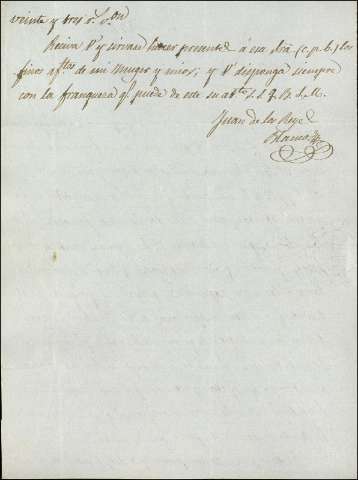 veinte y tres r.s v.on
Reciva V. y sirvase hacer presente á esa Sra (c.p.b.) los
finos aftos de mi Muger y mios, y V. disponga siempre
con la franqueza q.e puede de este su at.to S. S. Q. B. S. M.
Juan de la Reye
Blanco